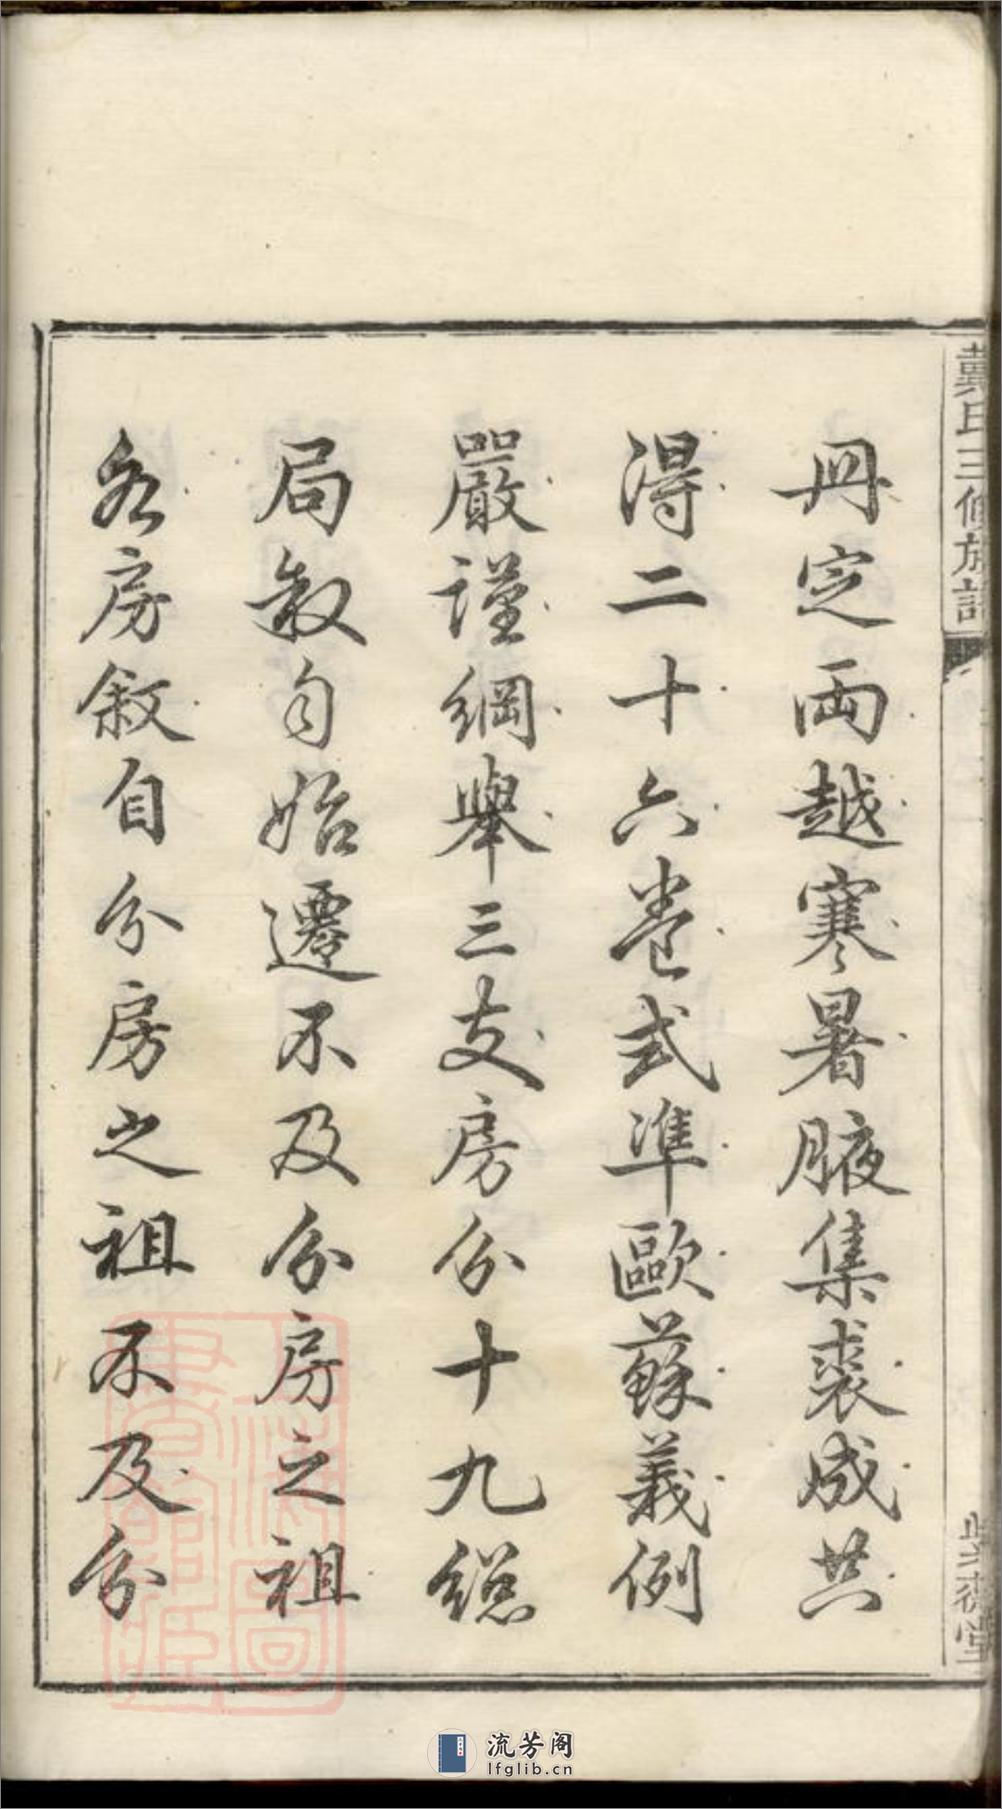 戴氏三修族譜
冊定兩越寒暑腋集裘成共
得二十六卷式準歐蘇義例
嚴謹綱舉三支房分十九總
局敘自始遷不及分房之祖
各房敘自分房之祖不及分
流芳阁
lfglib.cn